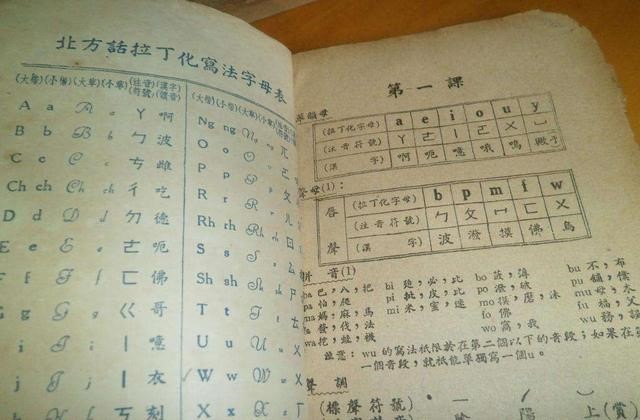 北方話拉丁化寫法字母表
(大楷)(小楷)(大草)(小草)(注音符號)(漢字讀音)
A a A a ㄚ 啊
B b B b ㄅ 波
C c C c ㄘ 雌
Ch ch Ch ch ㄔ 吃
D d D d ㄉ 德
E e E e ㄜ 呃
F f F f ㄈ 佛
G g G g ㄍ 哥
I i I i 噫
J j J j 衣
K k 刻
(大楷)(小楷)(大草)(小草)
Ng ng Ng ng
O o O o ㄛ
P p P p ㄆ
R r R r ㄦ
Rh rh Rh rh ㄖ
S s S s ㄙ
Sh sh Sh sh ㄕ
T t T t ㄊ
U u U u ㄨ
W w W w ㄨ
第一課
單韻母
(拉丁化字母) a e i o u y
(注音符號) ㄚ ㄜ ㄧ ㄛ ㄨ ㄩ
(漢字) 啊 呃 噫 哦 嗚
聲母(1):
唇聲
(拉丁化字母) b p m f w
(注音符號) ㄅ ㄆ ㄇ ㄈ ㄨ
(漢字) 波 潑 摸 佛 烏
拼音(1)
ba 巴,八,把 bi 必,比 bo 波,薄 bu 不,布
pa 怕,爬 pi 批,皮,匹 po 潑,破 pu 鋪
ma 媽,麻,馬 mi 米,蜜,迷 mo 摸,磨,沫 mu 母,木
fa 發,伐,法 fo 佛 fu 福,父
wa 挖,蛙,襪 wo 窩,我 wu 務
注意: wu 的寫法祇限於在第二個以下的音段;如果在
一個音段,就祇能單獨寫一個u。
聲調
(標聲符號)
上(賞)